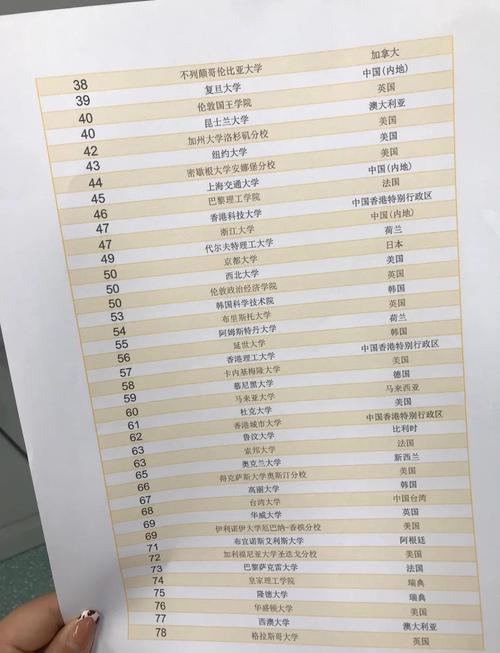 38 不列颠哥伦比亚大学 加拿大
39 复旦大学 中国(内地)
40 伦敦国王学院 英国
40 昆士兰大学 澳大利亚
42 加州大学洛杉矶分校 美国
43 纽约大学 美国
44 密歇根大学安娜堡分校 美国
45 上海交通大学 中国(内地)
46 巴黎理工学院 法国
47 香港科技大学 中国香港特别行政区
47 浙江大学 中国(内地)
49 代尔夫特理工大学 荷兰
50 京都大学 日本
50 西北大学 美国
50 伦敦政治经济学院 英国
53 韩国科学技术院 韩国
54 布里斯托大学 英国
55 阿姆斯特丹大学 荷兰
56 延世大学 韩国
57 香港理工大学 中国香港特别行政区
58 卡内基梅隆大学 美国
59 慕尼黑大学 德国
60 马来亚大学 马来西亚
61 杜克大学 美国
62 香港城市大学 中国香港特别行政区
63 鲁汶大学 比利时
63 索邦大学 法国
65 奥克兰大学 新西兰
66 得克萨斯大学奥斯汀分校 美国
67 高丽大学 韩国
68 台湾大学 中国台湾
69 华威大学 英国
69 伊利诺伊大学厄巴纳-香槟分校 美国
71 布宜诺斯艾利斯大学 阿根廷
72 加利福尼亚大学圣迭戈分校 美国
73 巴黎萨克雷大学 法国
74 皇家理工学院 瑞典
75 隆德大学 瑞典
76 华盛顿大学 美国
77 西澳大学 澳大利亚
78 格拉斯哥大学 英国